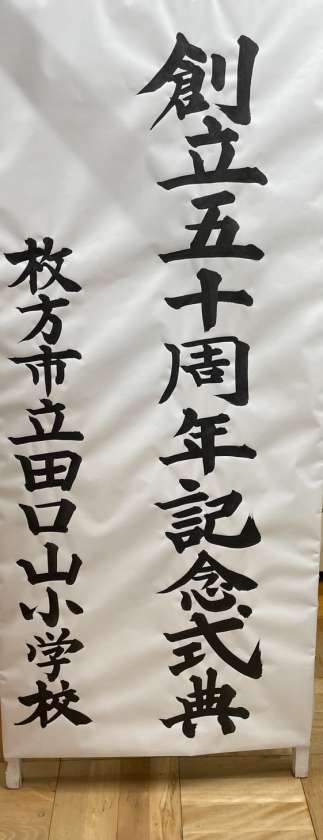 創立五十周年記念式典
枚方市立田口山小学校